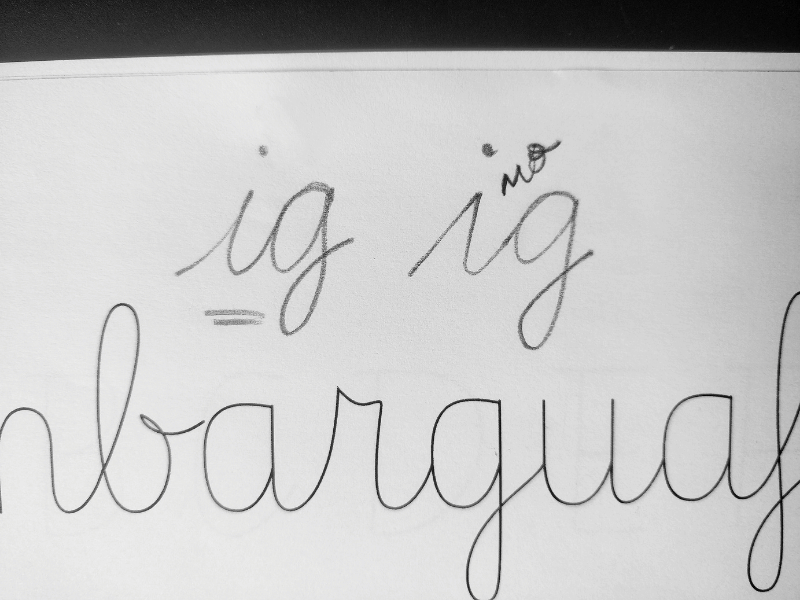 no
ig ig
nbarguaf